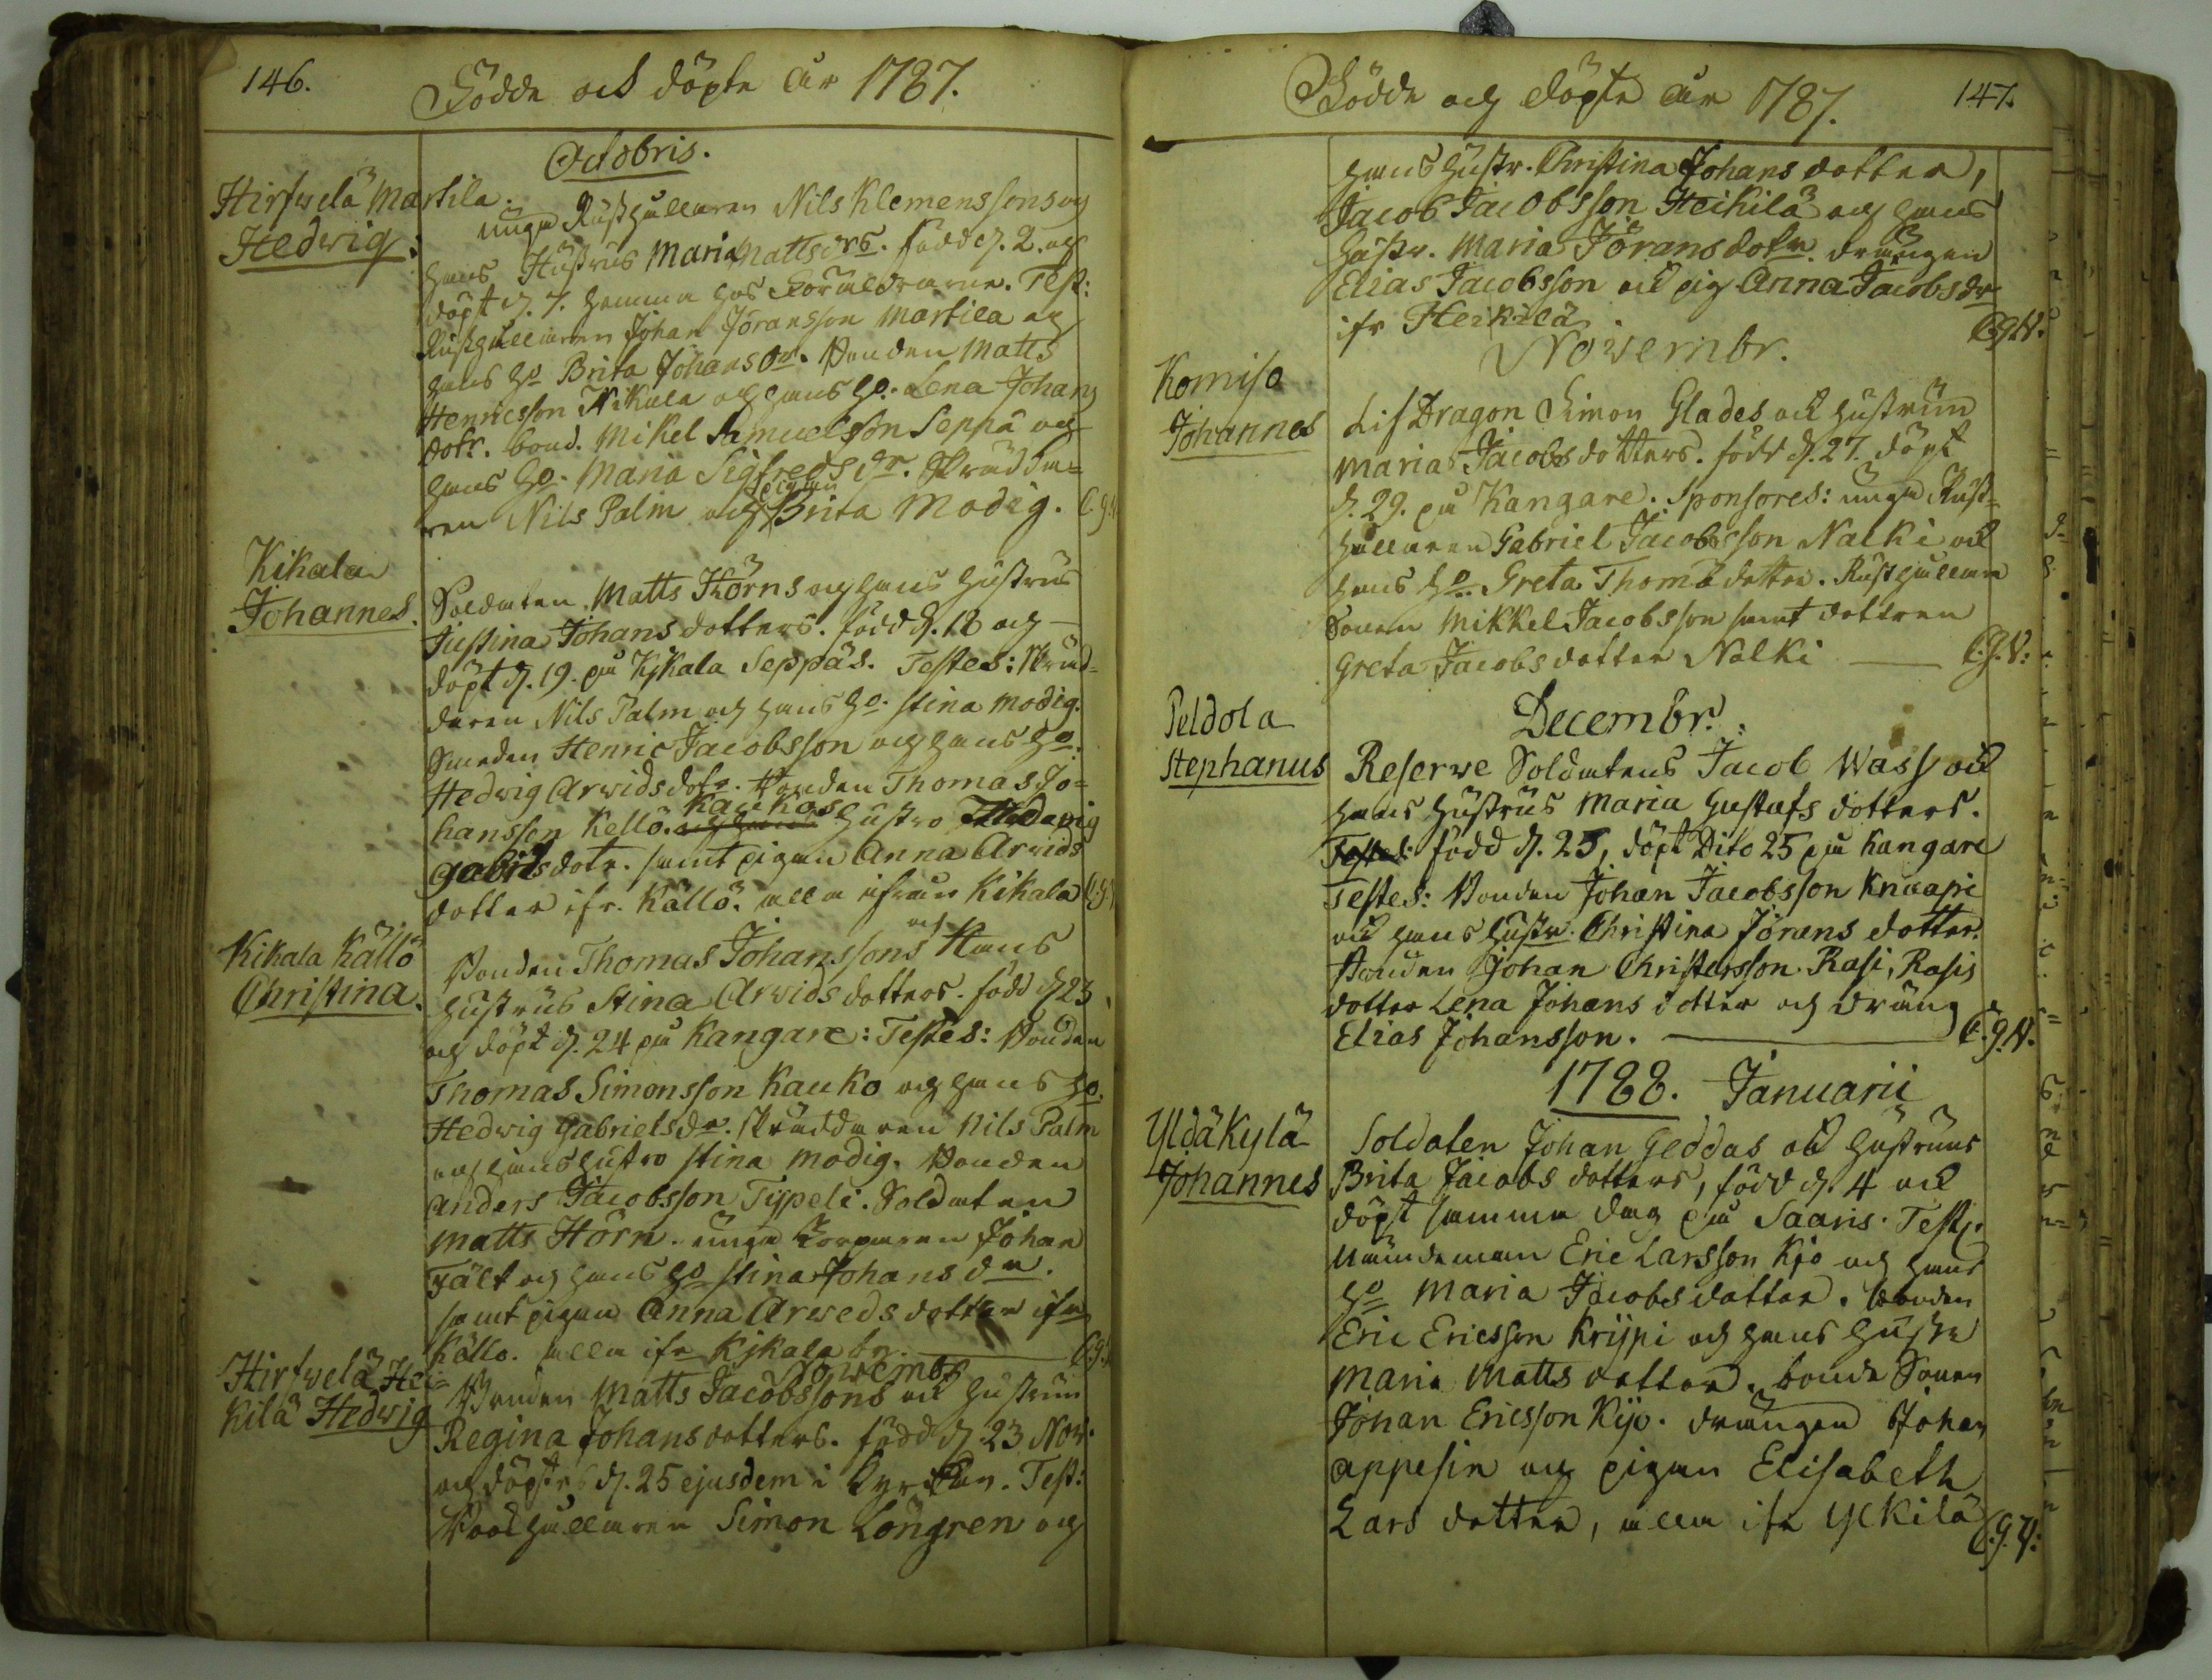 146.
Födde och döpte År 1787.
Octobris.
Hirfwelä Martila.
Hedwig.
unga Rusthållaren Nils Klemenssons og
hans Hustrus Maria Mattsdrs. född d. 2. og
döpt d. 7. hemma hos Föräldrarne. Test:
Rusthållaren Johan Jöransson Martila og
hans ho Brita Johansdr. Bonden Matts
Henricsson Nikula og hans ho. Lena Johans
dotr. bond. Mikel Samuelsson Seppä og
hans ho. Maria Sigfredsdr. Skrädda=
ren Nils Palm och pigan Brita Modig. C.g.V
Kikala
Johannes.
Soldaten Matts Hörns og hans hustrus
Justina Johansdotters. född d. 18 og
döpt d. 19. på Kjkala Seppäs. Testes: Skräd-
daren Nils Palm och hans ho. Stina Modig.
Smeden Henric Jacobsson og hans ho.
Hedwig Arwidsdotr. Bonden Thomas Jo=
hansson Kellö. Kaukos hustro Hedwig
Gabrielsdotr. samt pigan Anna Arvids
dotter ifr. Källö. alla ifrån Kikala C.g.V
Kikala Källö
Christina.
Bonden Thomas Johanssons och Hans
hustrus Stina Arwidsdotters. född d 23
og döpt d. 24 på Kangare: Testes: Bonden
Thomas Simonsson Kauko og hans ho.
Hedwig Gabrielsdr. Skräddaren Nils Palm
og hans hustro Stina Modig. Bonden
Anders Jacobsson Typeli. Soldaten
Matts Hörn. unga Torparen Johan
Fält og hans ho Stina Johansdr.
samt pigan Anna Arwedsdotter ifr
Källo. alla ifr Kjkala by. C.g.V
Novembr
Hirfwelä Hei=
kilä Hedwig
Bonden Matts Jacobssons och hustrun
Regina Johansdotters. född d. 23 Nov.
og döptes d. 25 ejusdem i Kyrckan. Test:
Bodhållaren Simon Löngren og
Födde og döpte år 1787.
147.
hans hustr. Christina Johansdotter,
Jacob Jacobsson Heikilä og hans
hustr. Maria Jöransdotr. drängen
Elias Jacobsson och pig Anna Jacobsdr
ifr Heikilä C.g.V.
Novembr.
Komiso
Johannes
Lif Dragon Simon Glades och hustrun
Maria Jacobsdotters. född d. 27. döpt
d. 29. på Kangare. Sponsores: unga Rust=
hållaren Gabriel Jacobsson Nalki och
hans ho. Greta Thomædotter. Rusthållare
Sonen Mikkel Jacobsson samt dottren
Greta Jacobsdotter Nalki C.g.V:
Decembr.
Peldola
Stephanus
Reserve Soldatens Jacob Wass och
hans hustrus Maria Gustafsdotters.
Testes: född d. 25, döpt Dito 25 på Kangare
Testes: Bonden Johan Jacobsson Knaapi
och hans hustr. Christina Jöransdotter.
Bonden Johan Christersson Rasi, Rasis
dotter Lena Johansdotter og dräng
Elias Johansson. C.g.V.
1788. Januarii
Yldäkylä
Johannes
Soldaten Johan Geddas och hustruns
Brita Jacobsdotters, född d. 4 och
döpt samma dag på Saaris. Test:
Nämndeman Eric Larsson Kjo og hans
ho Maria Jacobsdotter. Bonden
Eric Ericsson Krijpi og hans hustr
Maria Mattsdotter. bonde Sonen
Johan Ericsson Kijo. drängen Johan
Appesin og pigan Elisabeth
Larsdotter, alla ifr Ylkilä C.g.V: